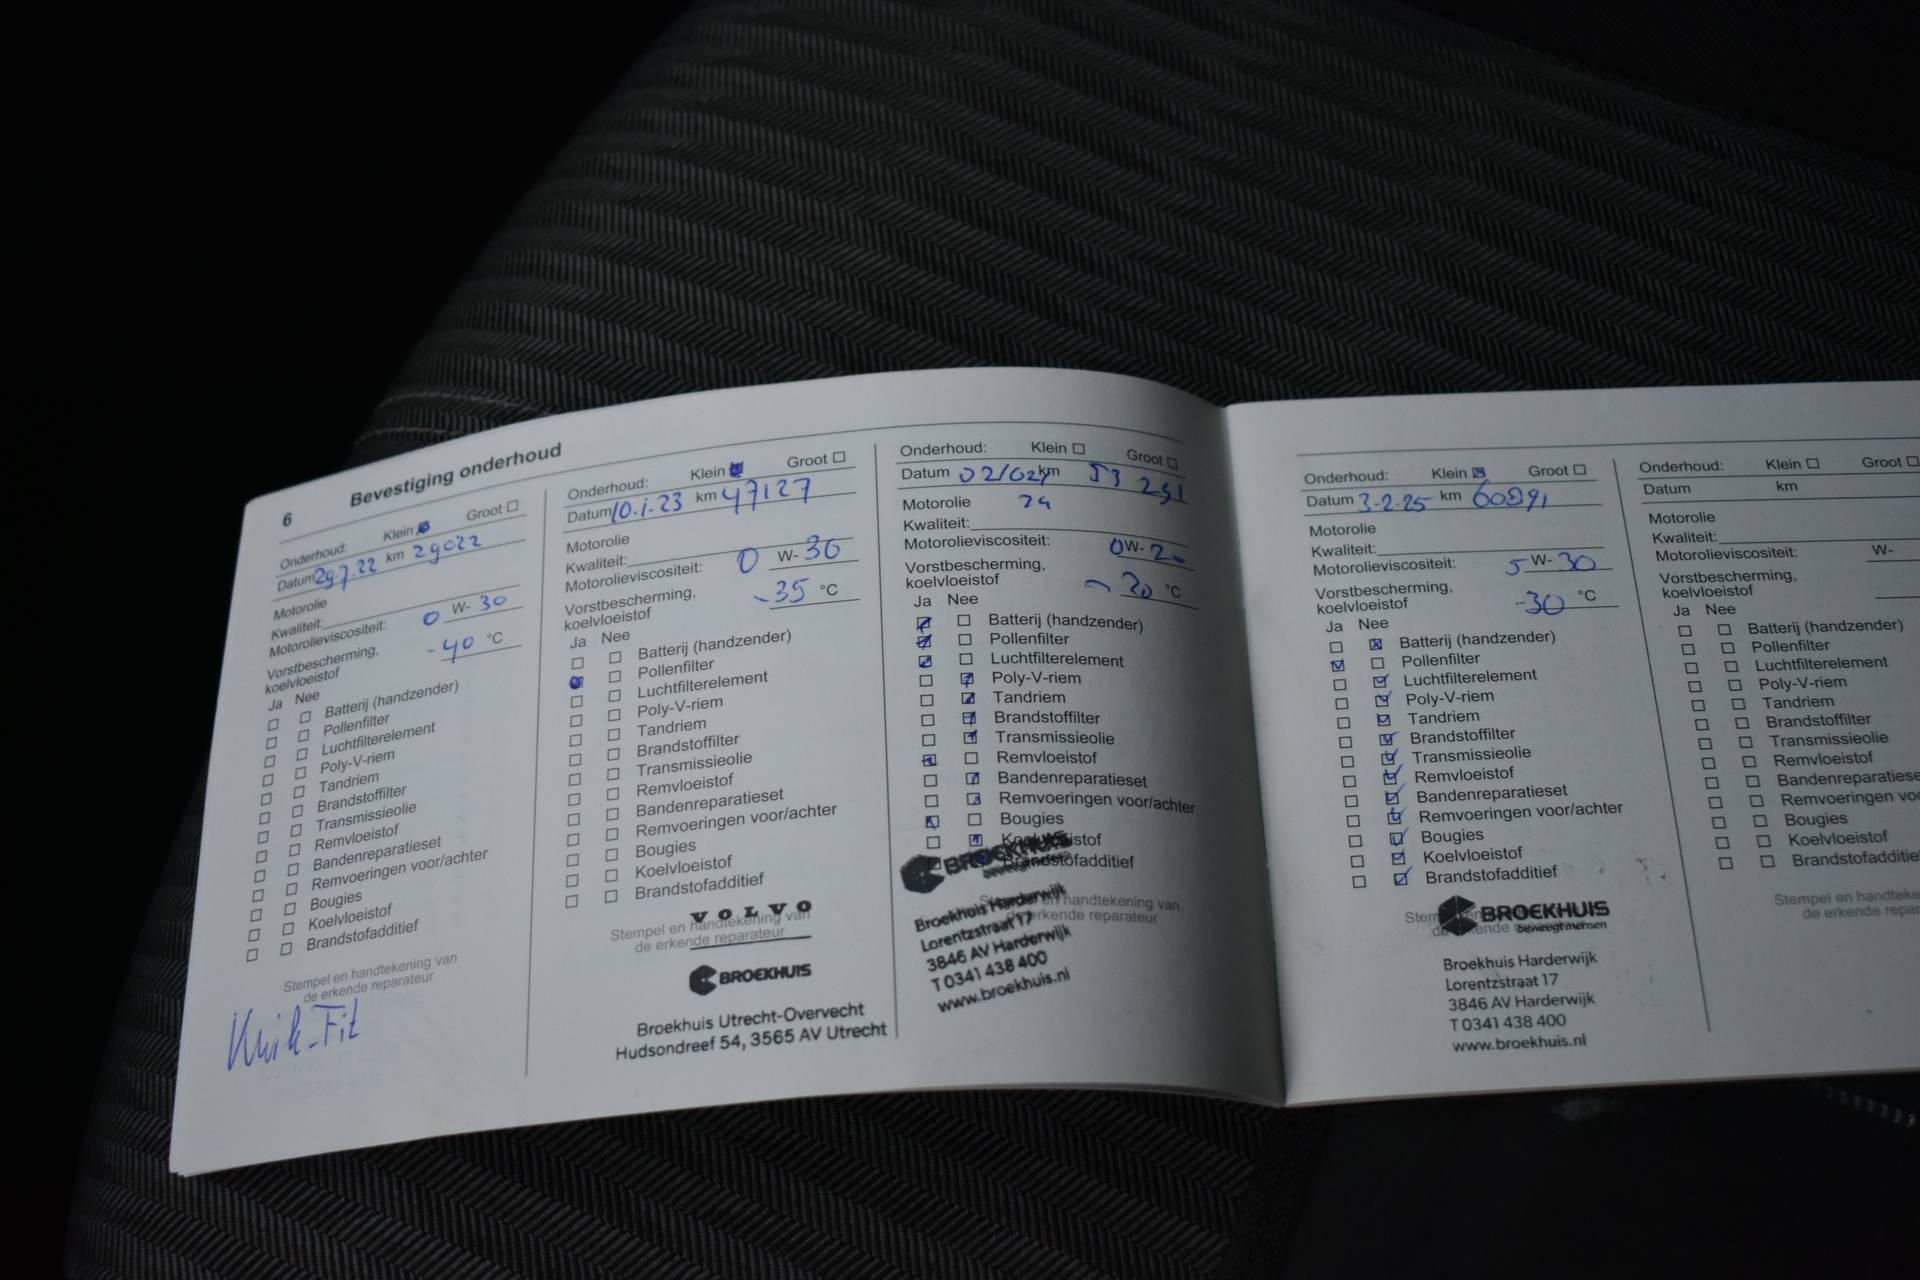 6 Bevestiging onderhoud
Onderhoud: Klein Groot
Datum 29.7.22 km 29022
Motorolie
Kwaliteit:
Motorolieviscositeit: 0 W- 30
Vorstbescherming,
koelvloeistof -40 °C
Ja Nee
Batterij (handzender)
Pollenfilter
Luchtfilterelement
Poly-V-riem
Tandriem
Brandstoffilter
Transmissieolie
Remvloeistof
Bandenreparatieset
Remvoeringen voor/achter
Bougies
Koelvloeistof
Brandstofadditief
Stempel en handtekening van
de erkende reparateur
Kwik-Fit
Onderhoud: Klein Groot
Datum 10.1.23 km 47127
Motorolie
Kwaliteit:
Motorolieviscositeit: 0 W- 30
Vorstbescherming,
koelvloeistof -35 °C
Ja Nee
Batterij (handzender)
Pollenfilter
Luchtfilterelement
Poly-V-riem
Tandriem
Brandstoffilter
Transmissieolie
Remvloeistof
Bandenreparatieset
Remvoeringen voor/achter
Bougies
Koelvloeistof
Brandstofadditief
VOLVO
Stempel en handtekening van
de erkende reparateur
BROEKHUIS
Broekhuis Utrecht-Overvecht
Hudsondreef 54, 3565 AV Utrecht
Onderhoud: Klein Groot
Datum 02/02/ km 53 251
Motorolie 24
Kwaliteit:
Motorolieviscositeit: 0W- 20
Vorstbescherming,
koelvloeistof - 30 °C
Ja Nee
Batterij (handzender)
Pollenfilter
Luchtfilterelement
Poly-V-riem
Tandriem
Brandstoffilter
Transmissieolie
Remvloeistof
Bandenreparatieset
Remvoeringen voor/achter
Bougies
Koelvloeistof
Brandstofadditief
BROEKHUIS
en handtekening van
de erkende reparateur
Broekhuis Harderwijk
Lorentzstraat 17
3846 AV Harderwijk
T 0341 438 400
www.broekhuis.nl
Onderhoud: Klein Groot
Datum 3-2-25 km 60891
Motorolie
Kwaliteit:
Motorolieviscositeit: 5 W- 30
Vorstbescherming,
koelvloeistof -30 °C
Ja Nee
Batterij (handzender)
Pollenfilter
Luchtfilterelement
Poly-V-riem
Tandriem
Brandstoffilter
Transmissieolie
Remvloeistof
Bandenreparatieset
Remvoeringen voor/achter
Bougies
Koelvloeistof
Brandstofadditief
BROEKHUIS
beweegt mensen
Broekhuis Harderwijk
Lorentzstraat 17
3846 AV Harderwijk
T 0341 438 400
www.broekhuis.nl
Onderhoud: Klein Groot
Datum km
Motorolie
Kwaliteit:
Motorolieviscositeit: W-
Vorstbescherming,
koelvloeistof
Ja Nee
Batterij (handzender)
Pollenfilter
Luchtfilterelement
Poly-V-riem
Tandriem
Brandstoffilter
Transmissieolie
Remvloeistof
Bandenreparatiese
Remvoeringen vo
Bougies
Koelvloeistof
Brandstofadditie
Stempel en handteke
de erkende repar